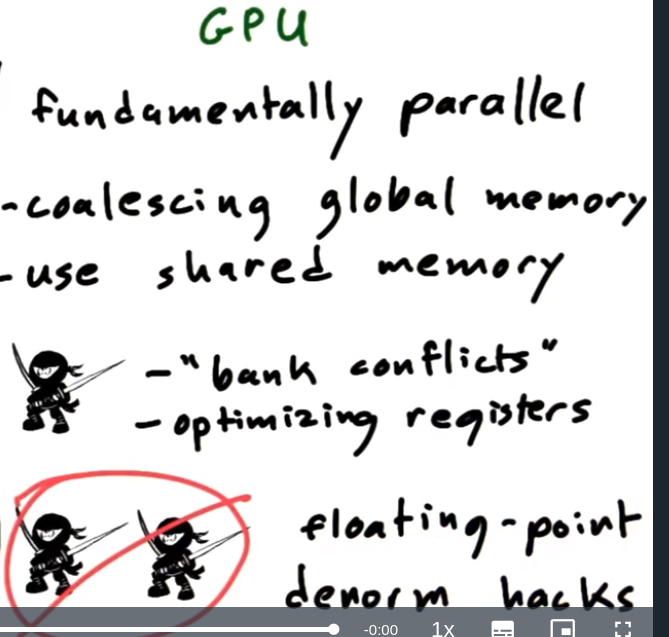 GPU
fundamentally parallel
-coalescing global memory
-use shared memory
-"bank conflicts"
-optimizing registers
floating-point
denorm hacks
-0:00 1x